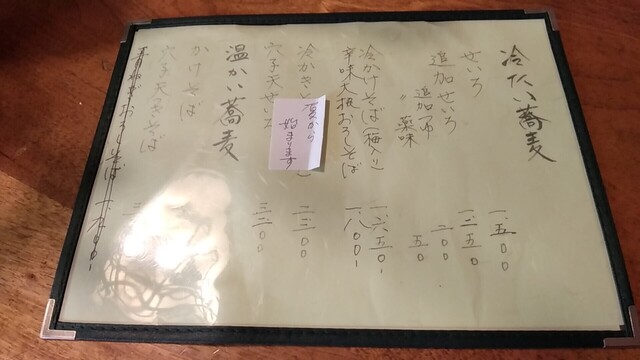 冷たい蕎麦
せいろ 一、五〇〇
追加せいろ 一、二五〇
追加つゆ 二〇〇
〃 薬味 五〇
冷かけそば(梅入り) 一、六五〇
辛味大根おろしそば 一、八〇〇
冷かき 二、三〇〇
夏から
始まります
穴子天せいろ 三、二〇〇
温かい蕎麦
かけそば
穴子天そば
おろしそば